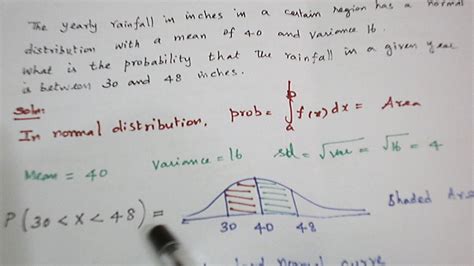 The yearly rainfall in inches in a certain region has a normal
distribution with a mean of 40 and variance 16.
What is the probability that the rainfall in a given year
is between 30 and 48 inches.
Soln:
In normal distribution, prob = ∫ₐᵇ f(x) dx = Area
Mean = 40 variance = 16 sd = √var = √16 = 4
P(30 < x < 48) =
30 40 48
Shaded Area
normal curve